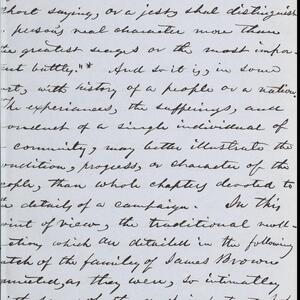 short saying, or a jest, shal distinguish
person's real character more than
the greatest seiges or the most impor-
battles."* And so it is, in some
with history of a people or a nation.
The experiances, the sufferings, and
conduct of a single individual of
community, may better illustrate the
condition, progress, or character of the
people, than whole chapters devoted to
the details of a campaign. In this
point of view, the traditional
which are detailed in the following
of the family of James Brown
as they were, so intimately